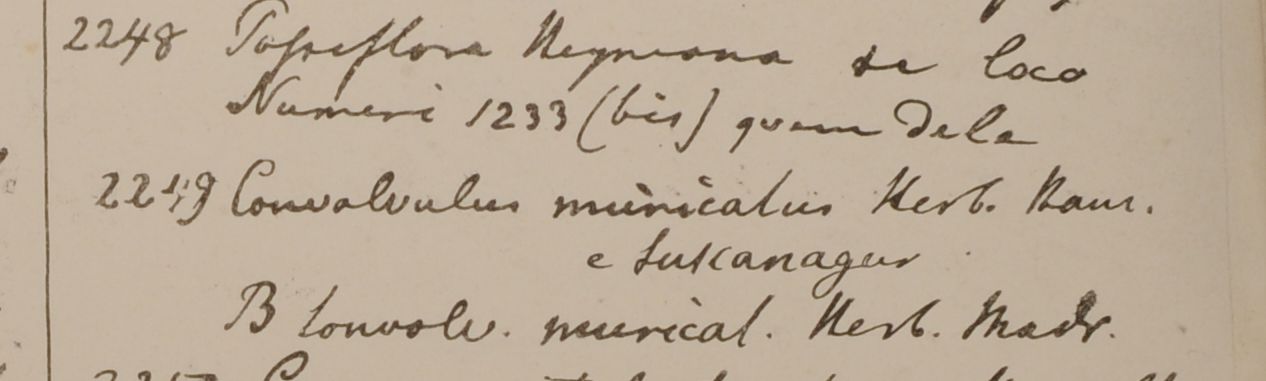 2248 Passiflora Heyneana de loco
Numeri 1233 (bis) quem dele
2249 Convolvulus muricatus Herb. Ham.
e Sukanagur
B Convolv. muricat. Herb. Madr.